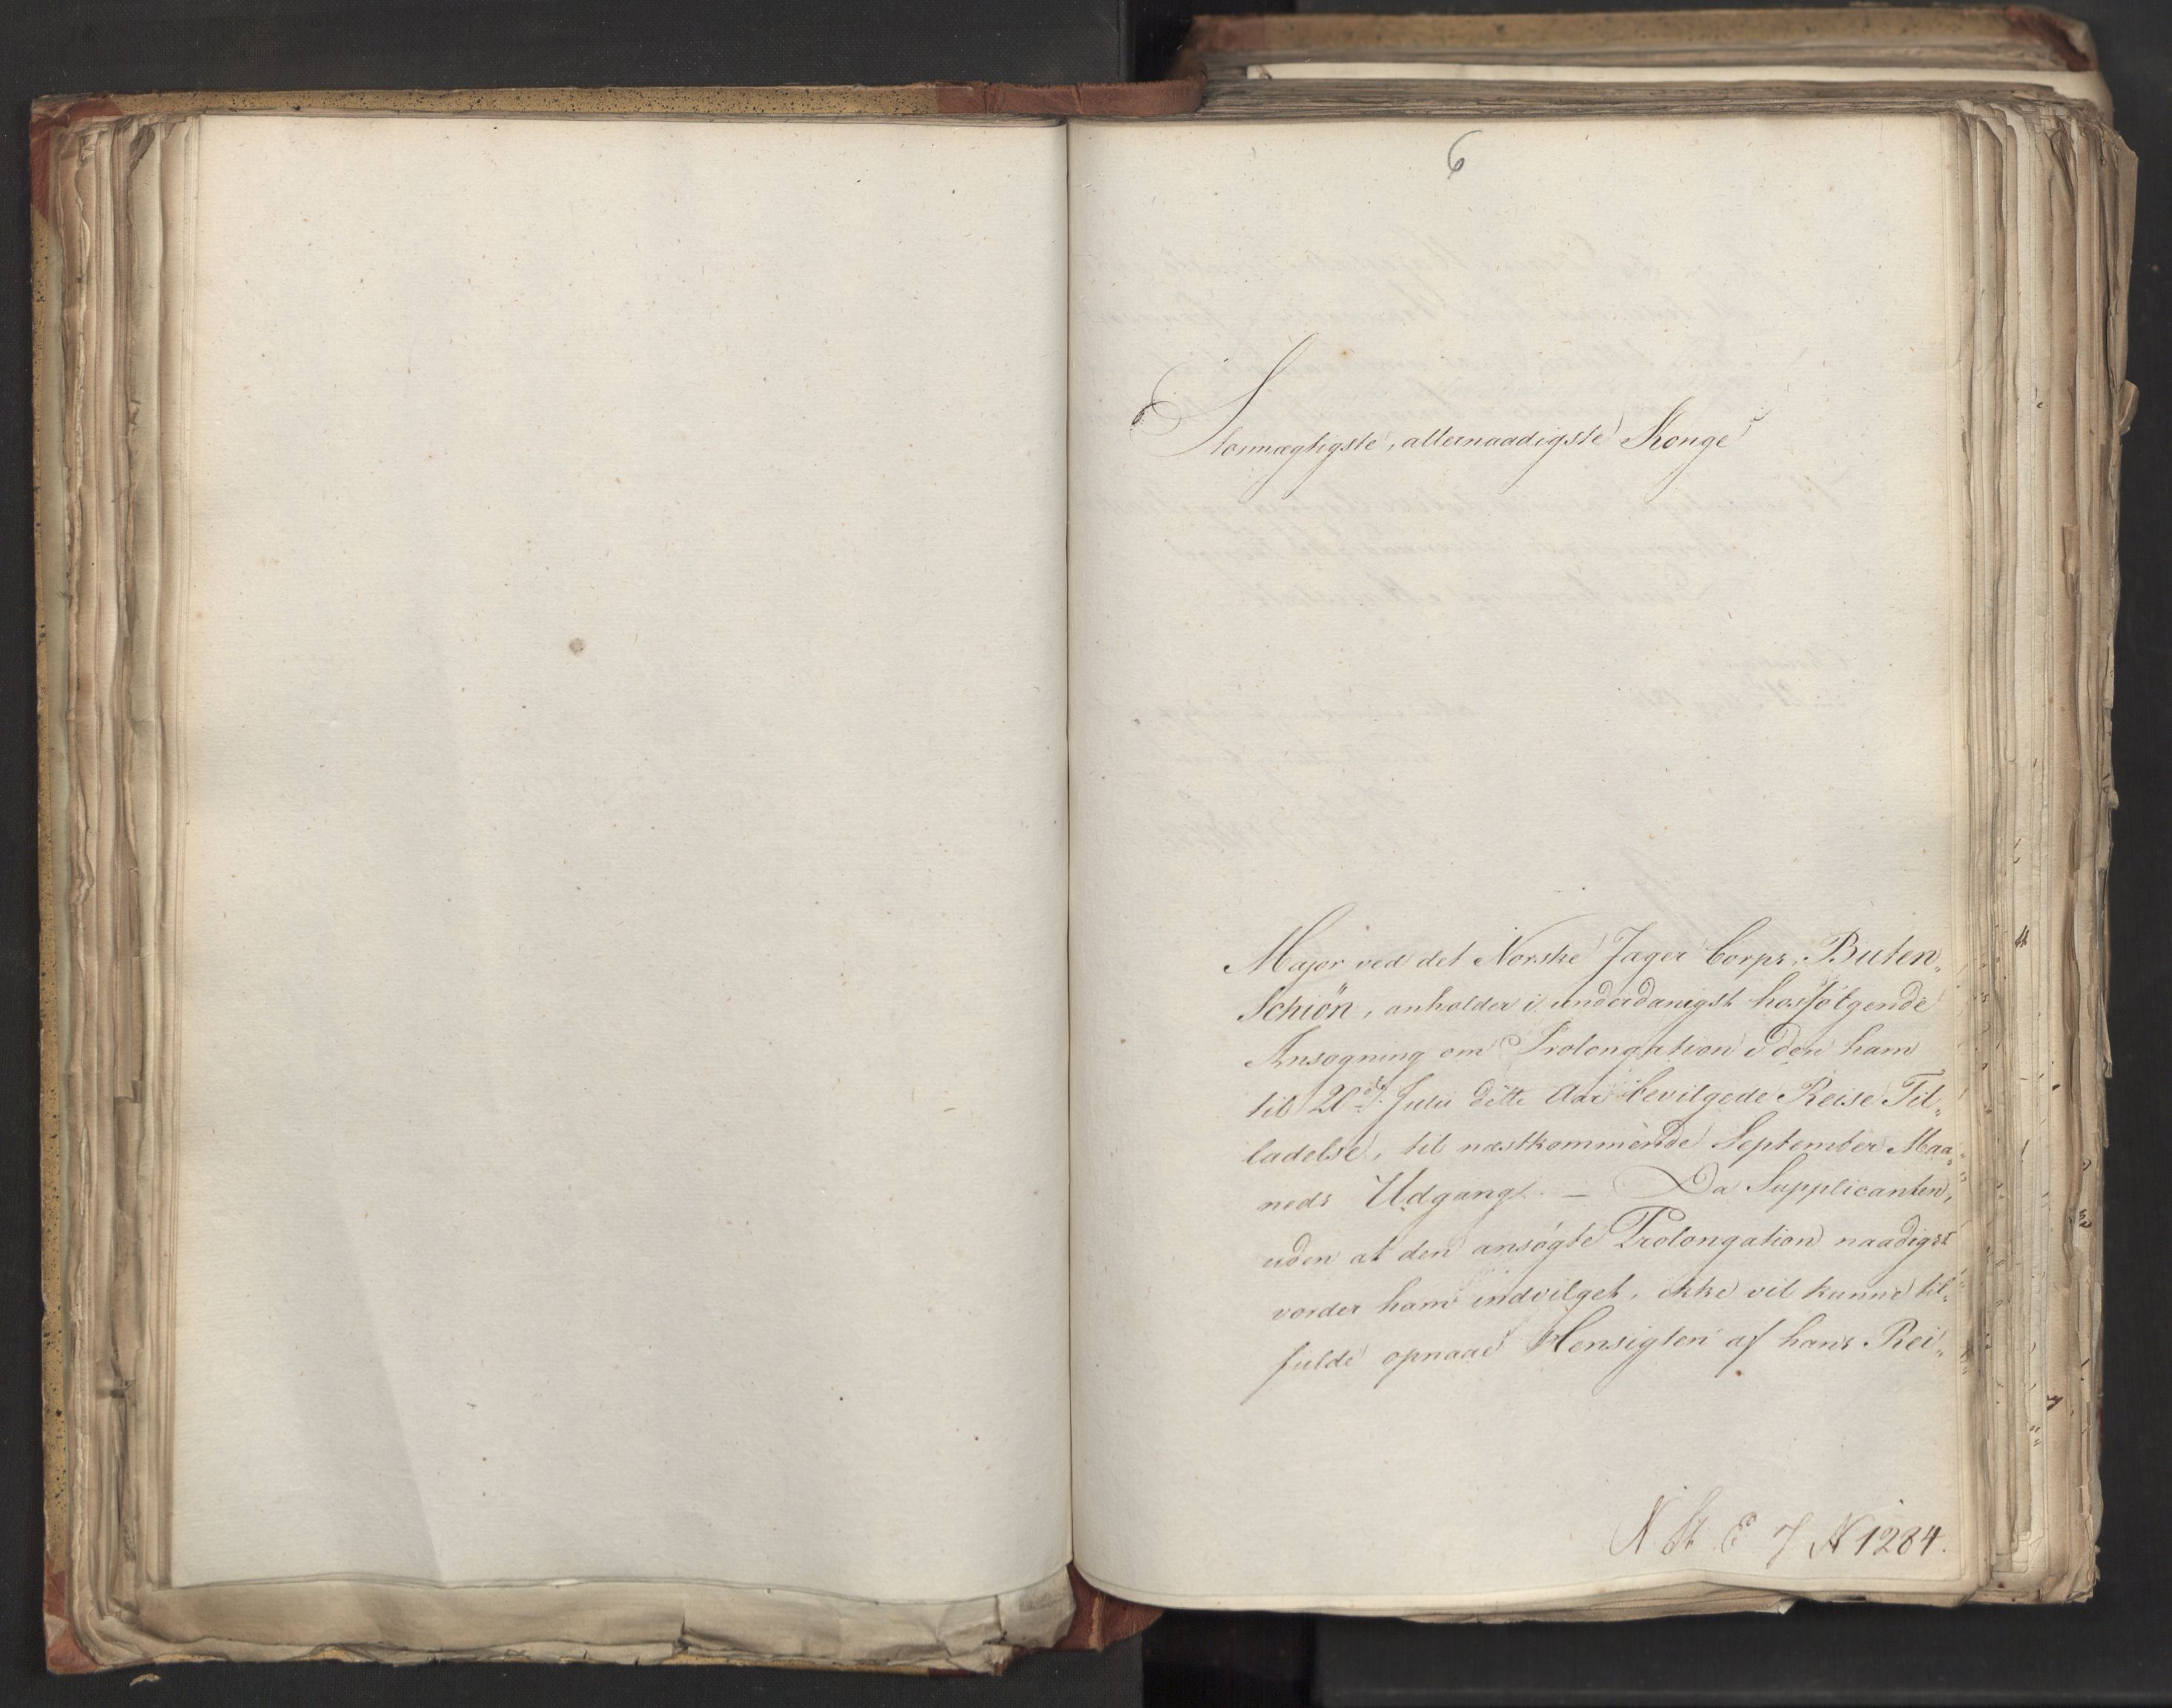 6
Stormægtigste, allernaadigste Konge!
Major ved det Norske Jæger Corps, Buten„
Schiøn, anholder i underdanigst hosfølgende
Ansøgning om Prolongation i den ham
til 20de Julii dette Aar bevilgede Reise Til„
ladelse, til næstkommende September Maa„
neds Udgang. — Da Supplicanten,
uden at den ansøgte Prolongation naadigst
vorder ham indvilget, ikke vil kunne til„
fulde opnaae Hensigten af hans Rei„
N. St. E. 7 N 1284.